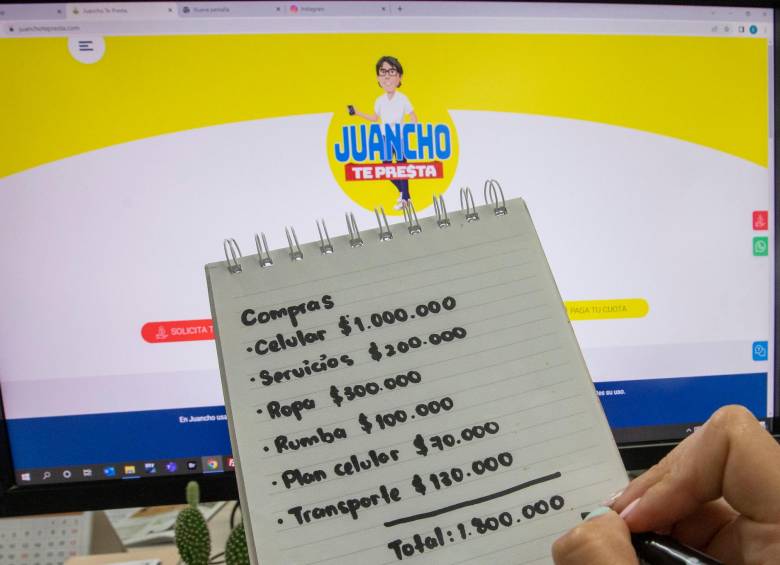 Juancho Te Presta Nueva pestaña Instagram
juanchotepresta.com
JUANCHO
TE PRE$TA
SOLICITA T
PAGA TU CUOTA
En Juancho usa
su uso.
Compras
· Celular $1.000.000
· Servicios $200.000
· Ropa $300.000
· Rumba $100.000
· Plan celular $70.000
· Transporte $130.000
Total: 1.800.000